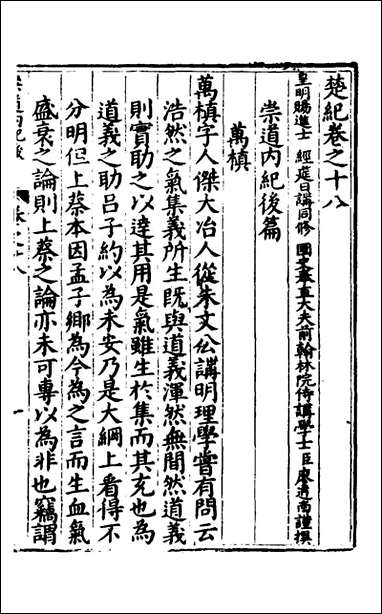 楚紀卷之十八
皇明賜進士 經筵日講同修 國史奉直大夫前翰林院侍講學士臣廖道南謹撰
崇道內紀後篇
萬槙
萬槙字人傑大冶人從朱文公講明理學嘗有問云
浩然之氣集義所生既與道義渾然無間然道義
則實助之以達其用是氣雖生於集而其充也為
道義之助呂子約以為未安乃是大綱上看得不
分明但上蔡本因孟子鄉為今為之言而生血氣
盛衰之論則上蔡之論亦未可專以為非也竊謂